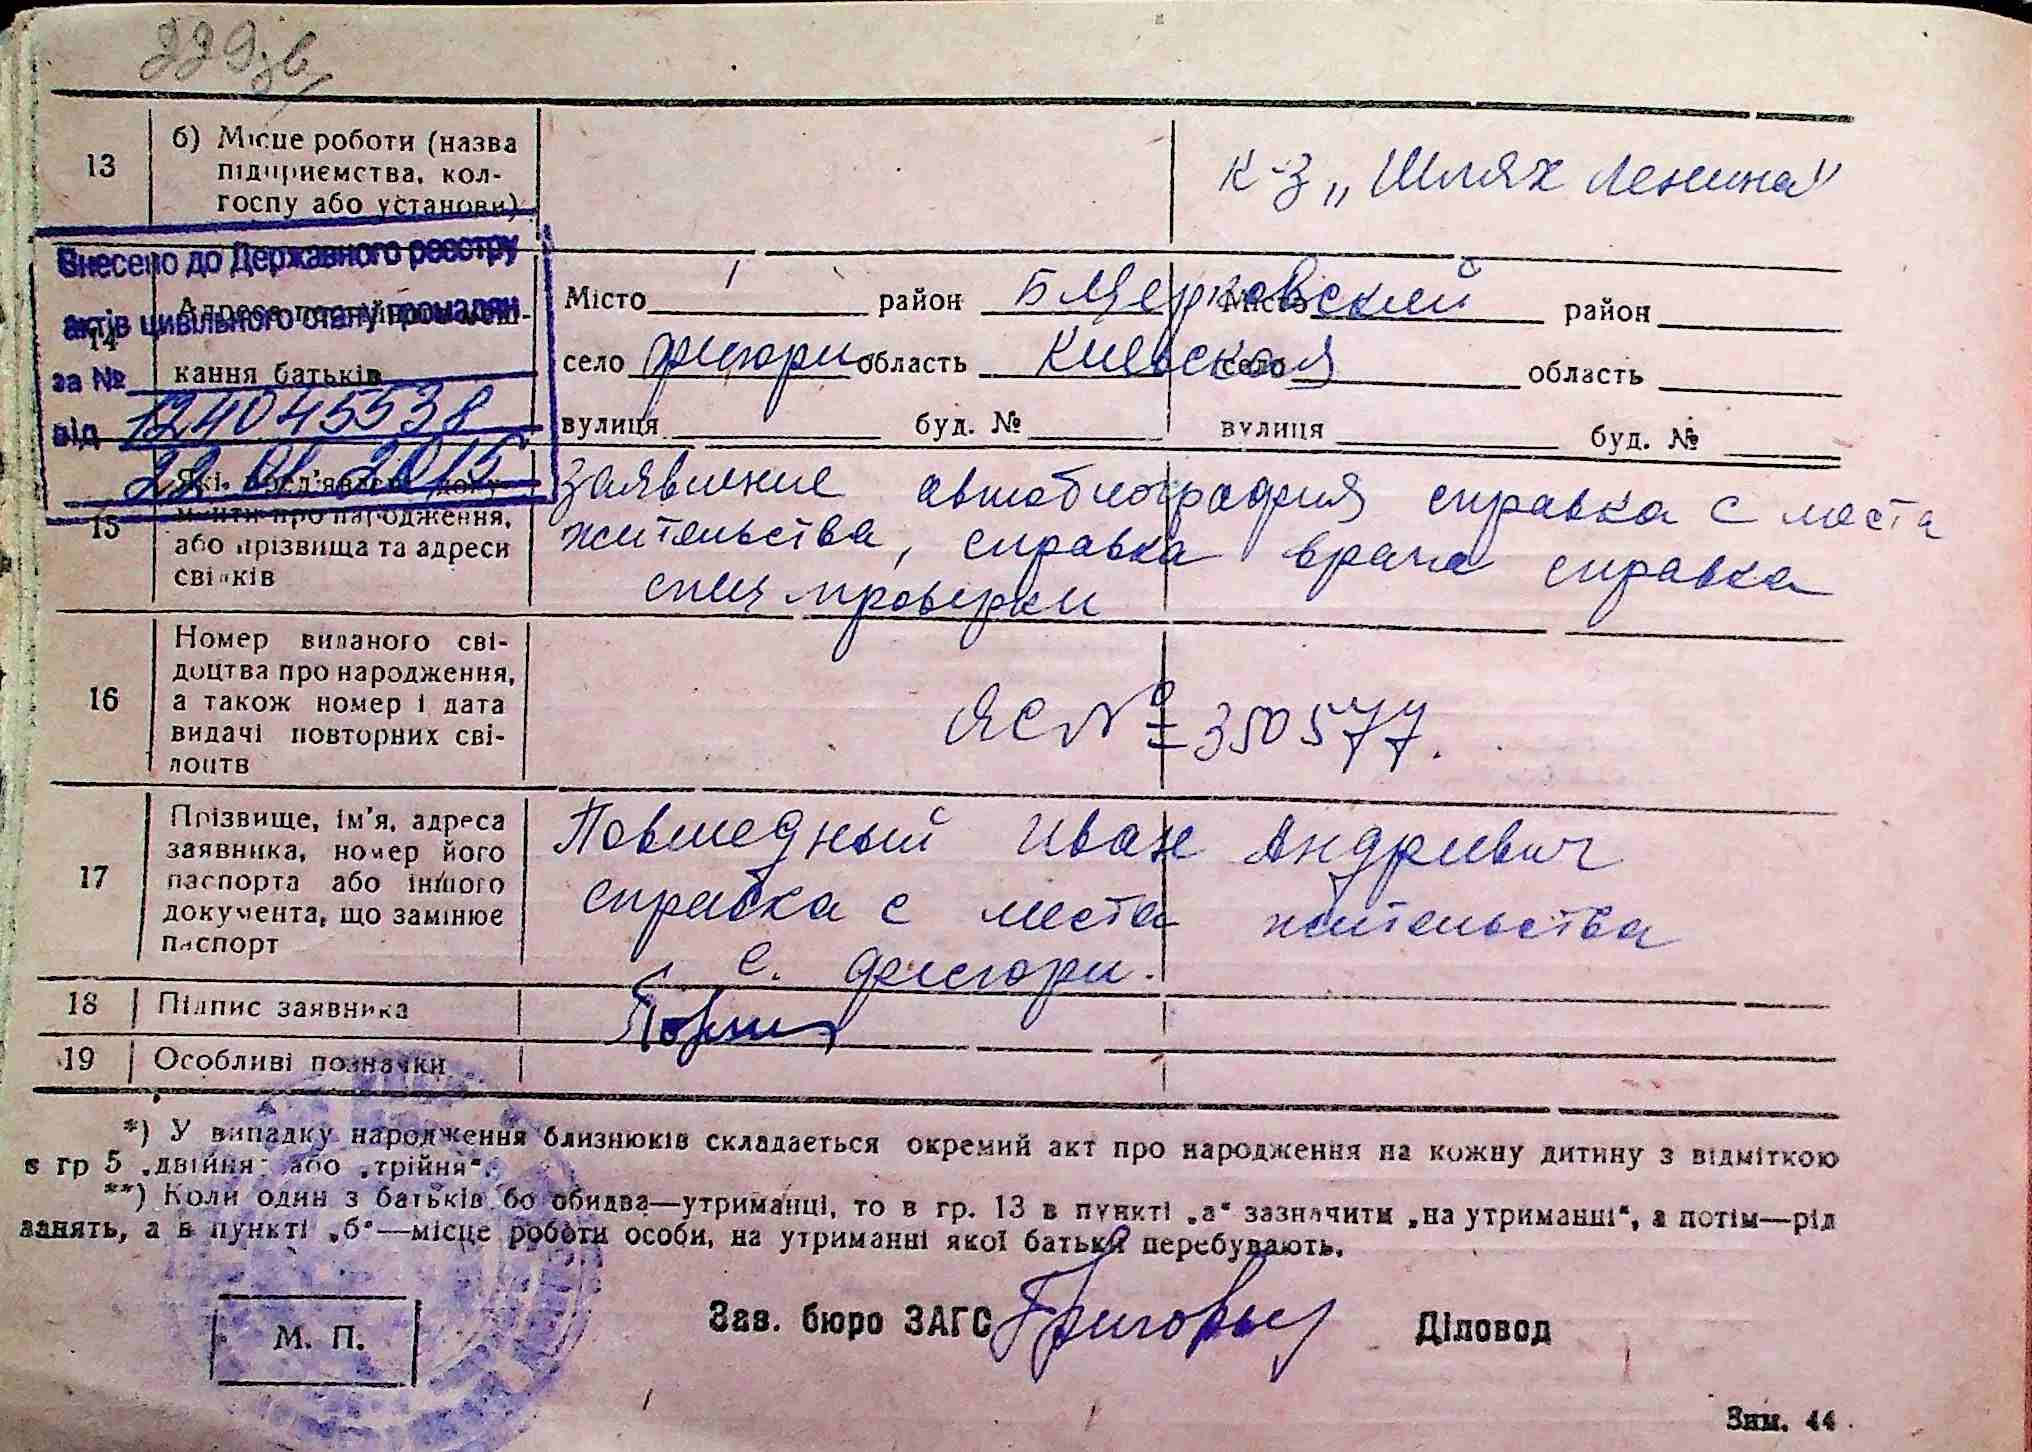 229зв
13
б) Місце роботи (назва
підприємства, кол-
госпу або установи)
к-з „Шлях Ленина"
Внесено до Державного реєстру
актів цивільного стану громадян
за № 124045538
від 22.01.2015
14
Адреса
кання батьків
Місто район Б Церковский
село область Киевская
вулиця буд. №
Місто район
село область
вулиця буд. №
15
Які
менти про народження,
або прізвища та адреси
свідків
Заявление автобиография справка с места
жительства, справка врача справка
спец проверки
16
Номер виданого сві-
доцтва про народження,
а також номер і дата
видачі повторних сві-
доцтв
ЯС № 350577.
17
Прізвище, ім'я, адреса
заявника, номер його
паспорта або іншого
документа, що замінює
паспорт
Иван Андриевич
справка с места жительства
с.
18
Підпис заявника
19
Особливі позначки
*) У випадку народження близнюків складається окремий акт про народження на кожну дитину з відміткою
в гр 5 „двійня" або „трійня".
**) Коли один з батьків бо обидва—утриманці, то в гр. 13 в пункті „а" зазначити „на утриманні", а потім—рід
занять, а в пункті „б"—місце роботи особи, на утриманні якої батьки перебувають.
М. П.
Зав. бюро ЗАГС
Діловод
Зим. 44